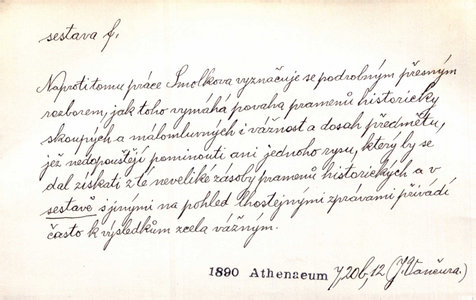 sestava f.
Naproti tomu práce Smolkova vyznačuje se podrobným přesným
rozborem, jak toho vymáhá povaha pramenů historicky
skoupých a málomluvných i vážnost a dosah předmětu,
jež nedopouštějí pominouti ani jednoho rysu, který by se
dal získati z té nevelike zásoby pramenů historických a v
sestavě s jinými na pohled lhostejnými zprávami přivádí
často k výsledkům zcela vážným.
1890 Athenaeum 7, 20b, 12 (J. Vančura.)